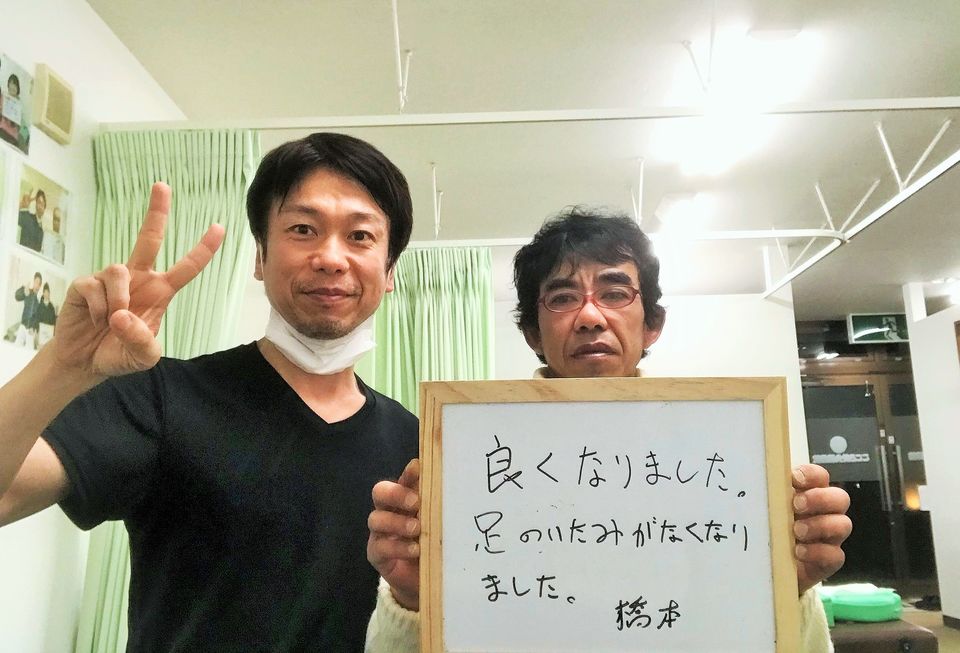 良くなりました。
足のいたみがなくなり
ました。
橋本